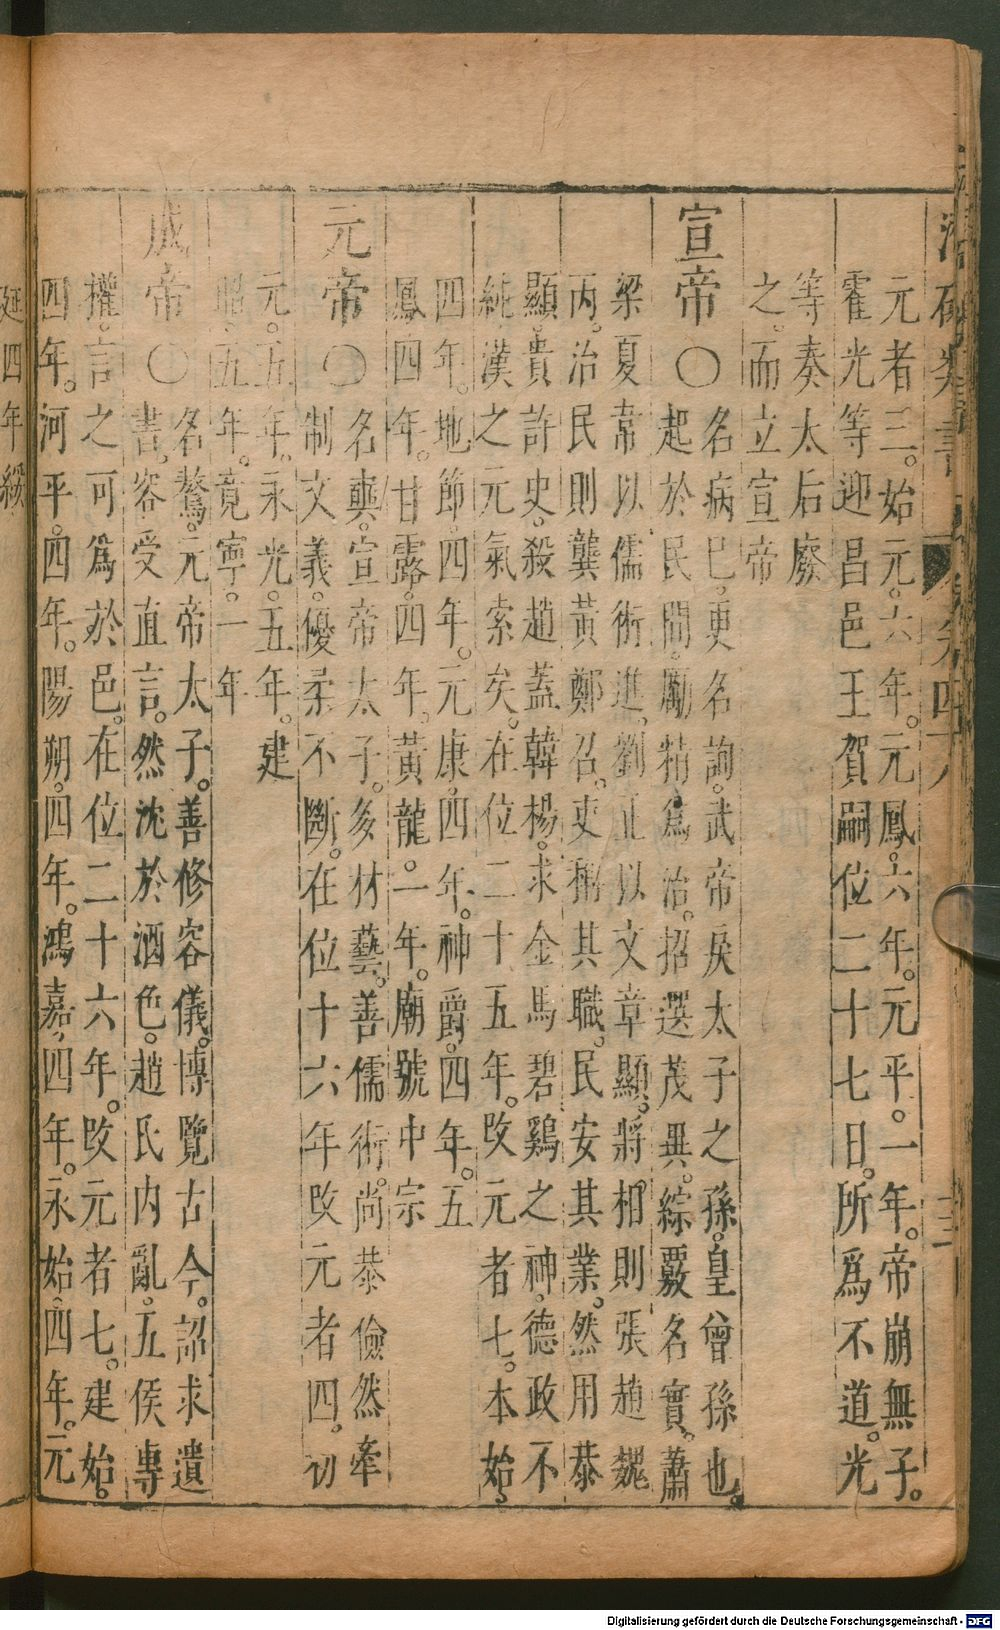 元者三。始元。六年。元鳳。六年。元平。一年。帝崩無子。
霍光等迎昌邑王賀嗣位二十七日。所爲不道。光
等奏太后廢
之。而立宣帝
宣帝〇名病已。更名詢。武帝戾太子之孫。皇曾孫也。
起於民間。勵精爲治。招選茂異。綜覈名實。蕭
梁夏常以儒術進。劉正以文章顯。將相則張趙魏
丙。治民則龔黃鄭召。吏稱其職。民安其業。然用恭
顯。貴許史。殺趙蓋韓楊。求金馬碧鷄之神。德政不
純。漢之元氣索矣。在位二十五年。改元者七。本始。
四年。地節。四年。元康。四年。神爵。四年。五
鳳。四年。甘露。四年。黃龍。一年。廟號中宗
元帝〇名奭。宣帝太子。多材藝。善儒術。尚恭儉然牽
制文義。優柔不斷。在位十六年改元者四。初
元。五年。永光。五年。建
昭。五年。竟寧。一年
成帝〇名驁。元帝太子。善修容儀。博覽古今。詔求遺
書。容受直言。然沈於酒色。趙氏内亂。五侯專
權。言之可爲於邑。在位二十六年。改元者七。建始。
四年。河平。四年。陽朔。四年。鴻嘉。四年。永始。四年。元
延四年綏
Digitalisierung gefördert durch die Deutsche Forschungsgemeinschaft - DFG